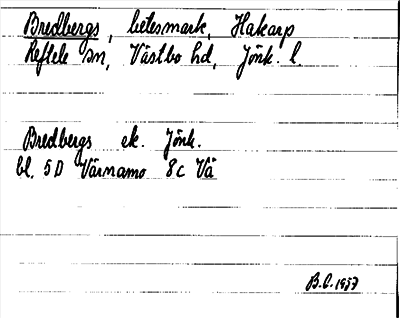 Bredbergs, betesmark, Hakarp
Reftele sn, Västbo hd, Jönk. l.
Bredbergs ek. Jönk.
bl. 5D Värnamo 8c Vä
B.C. 1937